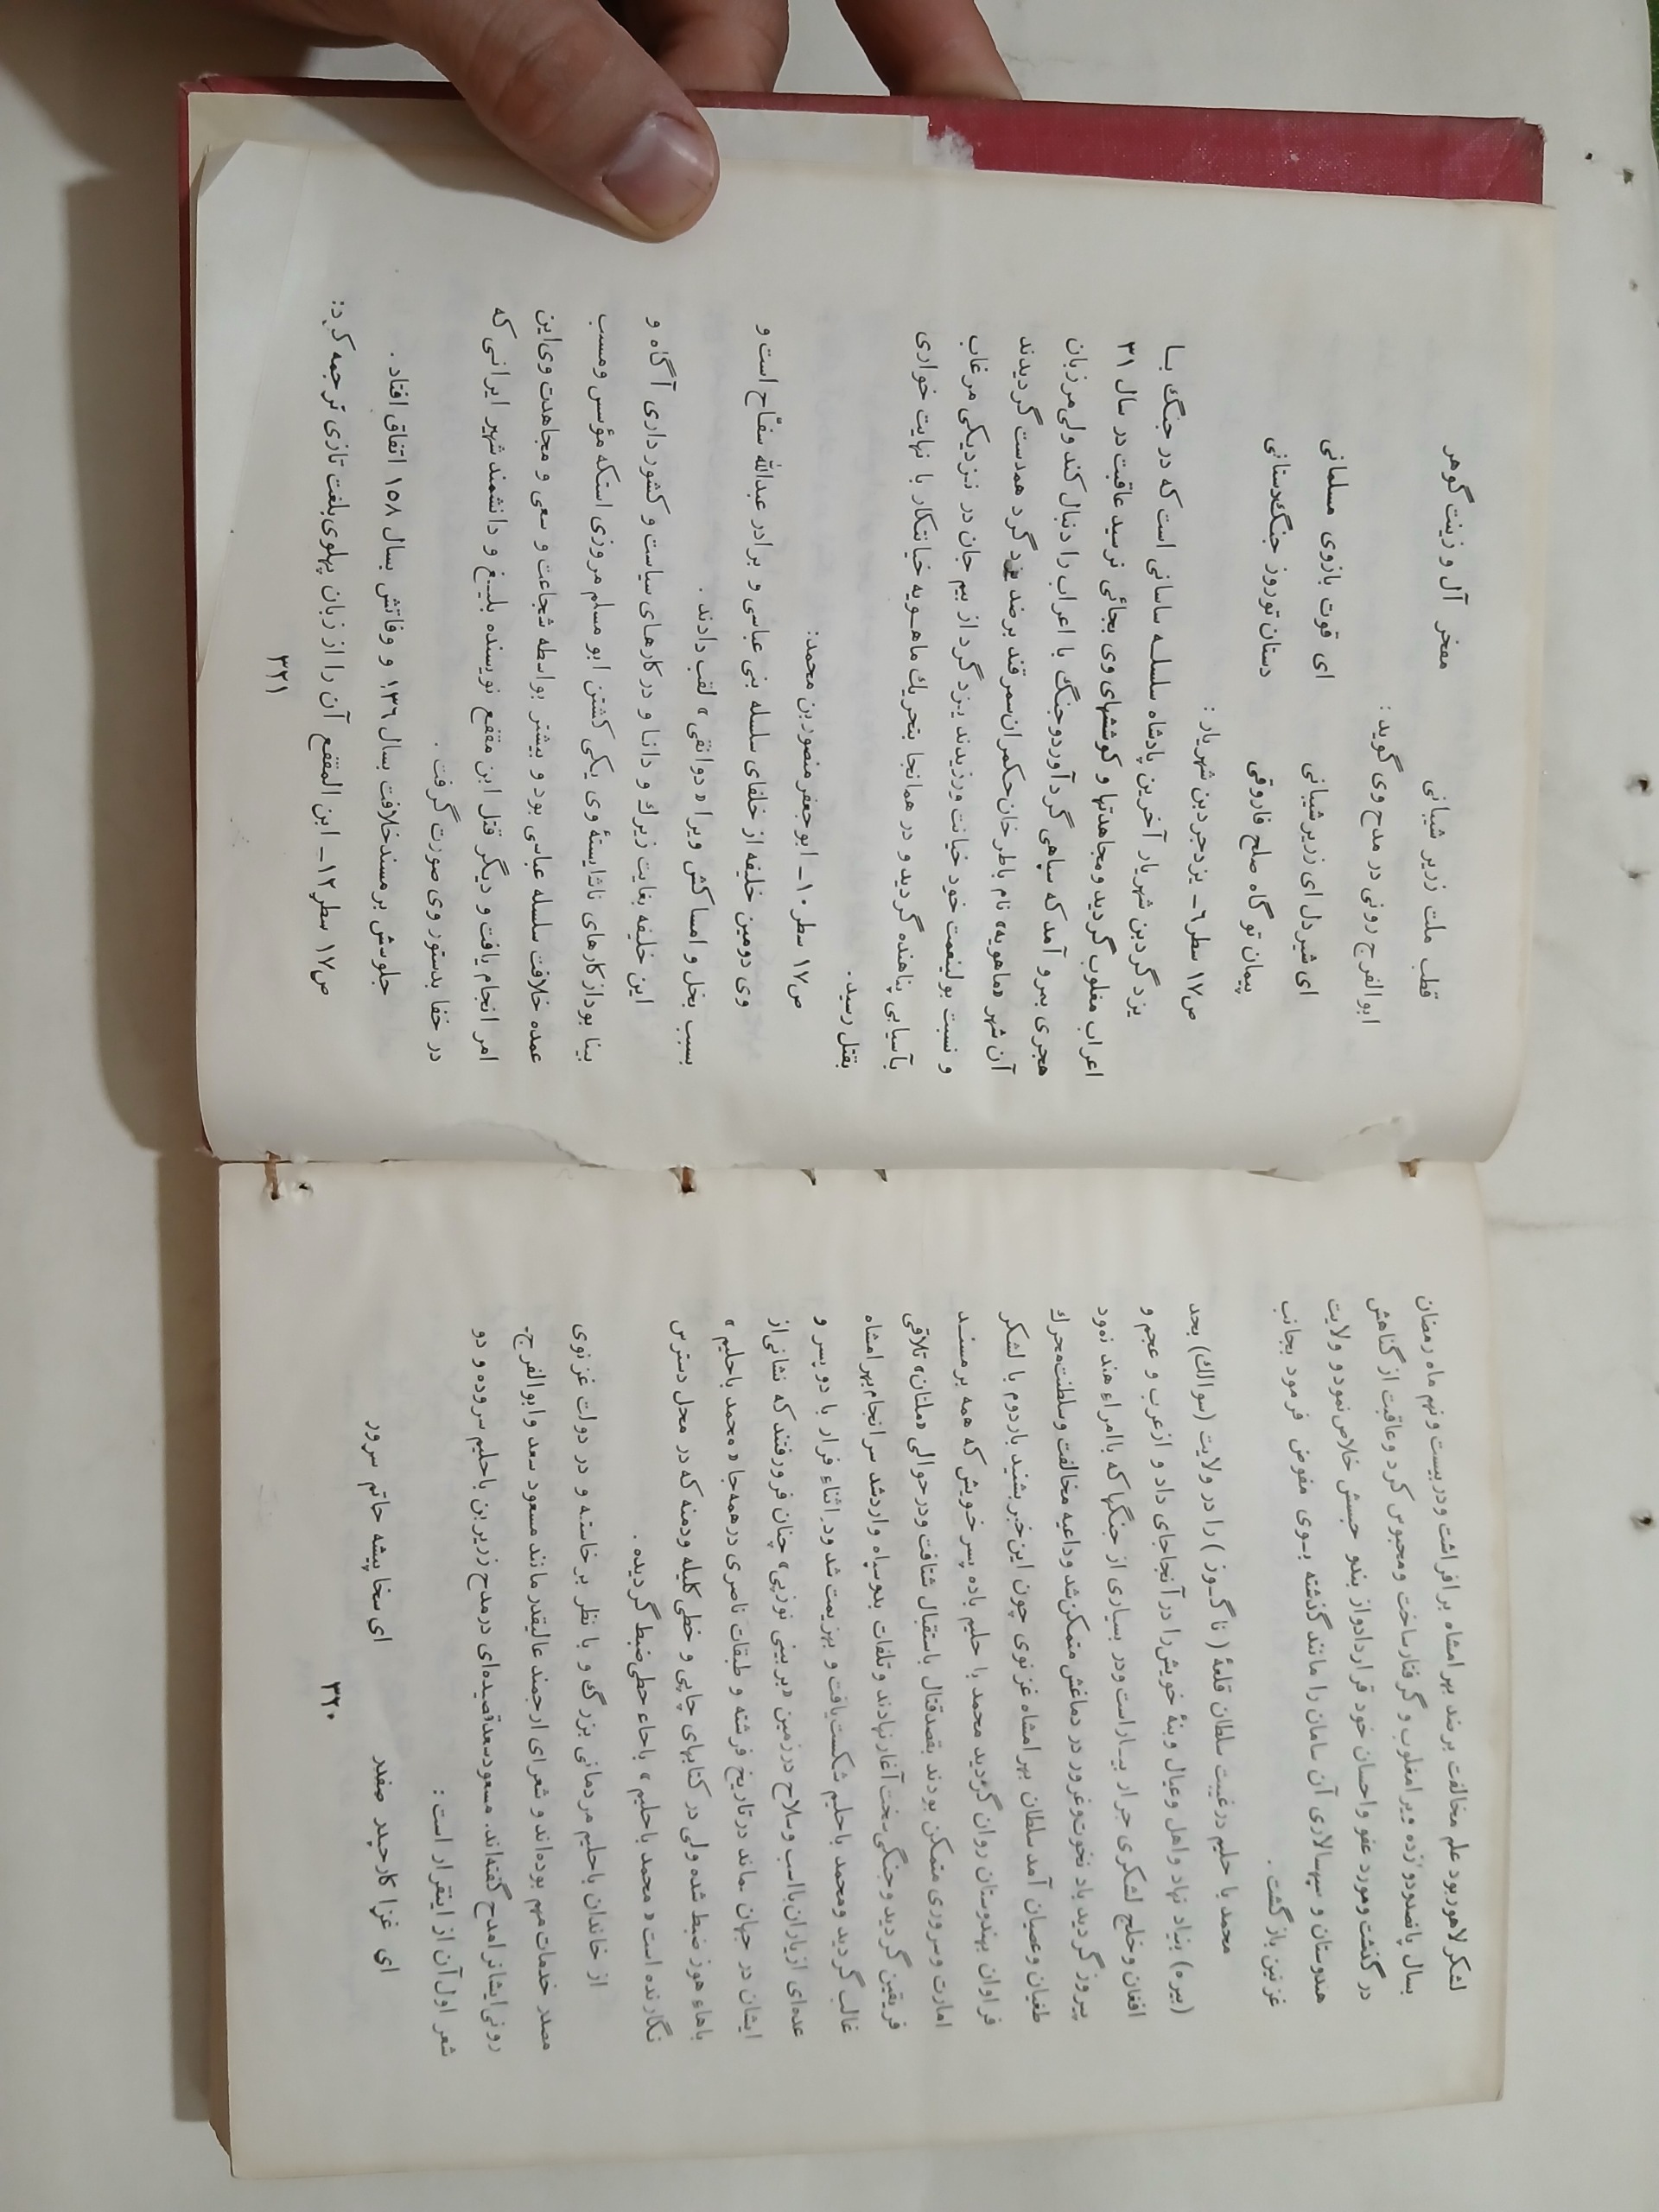 لشکر لاهور بود علم مخالفت برضد بهرامشاه برافراشت و در بیست و نهم ماه رمضان
بسال پانصدو دوازده ویرا مغلوب و گرفتار ساخت و محبوس کرد و عاقبت از گناهش
در گذشت و مورد عفو و احسان خود قرار داد و از بند و حبسش خلاص نمود و ولایت
هندوستان و سپهسالاری آن سامان را مانند گذشته بـوی مفوض فرمود بجانب
غزنین باز گشت .
محمد با حلیم در غیبت سلطان قلعۀ ( ناگـوز ) را در ولایت (سوالك) بحد
(بیره) بنیاد نهاد و اهل و عیال و بنۀ خویش را در آنجا جای داد و از عرب و عجم و
افغان و خلج لشکری جرار بیـاراست و در بسیاری از جنگها که با امراء هند نمود
پیروز گردید باد نخوت و غرور در دماغش متمکن شد و داعیه مخالفت و سلطنت محرك
طغیان و عصیان آمد سلطان بهرامشاه غزنوی چون این خبر بشنید بار دوم با لشکر
فراوان بهندوستان روان گردید محمد با حلیم باده پسر خویش که همه بر مسنـد
امارت و سروری متمکن بودند بقصد قتال باستقبال شتافت و در حوالی «ملتان» تلاقی
فریقین گردید و جنگی سخت آغاز نهادند و تلفات بدو سپاه وارد شد سرانجام بهرامشاه
غالب گردید و محمد باحلیم شکست یافت و بهزیمت شد و در اثناء فرار با دو پسر و
عده‌ای از یاران با اسب و سلاح در زمین «بر بینی نوزیی» چنان فرو رفتند که نشانی از
ایشان در جهان نماند در تاریخ فرشته و طبقات ناصری در همه جا « محمد باهلیم »
باهاء هوز ضبط شده ولی در کتابهای چاپی و خطی کلیله و دمنه که در محل دسترس
نگارنده است « محمد باحلیم » باحاء حطی ضبط گردیده .
از خاندان باحلیم مردمانی بزرگ و با نظر برخاسته و در دولت غزنوی
مصدر خدمات مهم بوده‌اند و شعرای ارجمند عالیقدر مانند مسعود سعد و ابوالفرج-
رونی ایشانرا مدح گفته‌اند. مسعود سعد قصیده‌ای در مدح زریر بن باحلیم سروده و دو
شعر اول آن از اینقرار است :
ای غزا کار حیدر صفدر ای سخا پیشه حاتم سرور
۳۲۰
قطب ملت زریر شیبانی مفخر آل و زینت گوهر
ابوالفرج رونی در مدح وی گوید :
ای شیر دل ای زریر شیبانی ای قوت بازوی مسلمانی
پیمان تو گاه صلح فاروقی دستان تو روز جنگ دستانی
ص۱۷ سطر۶ـ یزدجرد بن شهریار :
یزدگرد بن شهریار آخرین پادشاه سلسلـه ساسانی است که در جنگ بـا
اعراب مغلوب گردید و مجاهدتها و کوششهای وی بجائی نرسید عاقبت در سال ۳۱
هجری بمرو آمد که سپاهی گرد آورد و جنگ با اعراب را دنبال کند ولی مرزبان
آن شهر «ماهویه» نام باطرخان حکمران سمرقند برضد یزدگرد همدست گردیدند
و نسبت بولینعمت خود خیانت ورزیدند یـزدگرد از بیم جان در نـزدیکی مرغاب
بآسیابی پناهنده گردید و در همانجا بتحریك ماهـویه خیانتکار با نهایت خواری
بقتل رسید .
ص۱۷ سطر۱۰ـ ابوجعفر منصور بن محمد:
وی دومین خلیفه از خلفای سلسله بنی عباسی و برادر عبدالله سفّاح است و
بسبب بخل و امساکش ویرا « دوانقی » لقب دادند .
این خلیفه بغایت زیرك و دانا و در کارهـای سیاست و کشور داری آگاه و
بینا بود از کارهای ناشایستۀ وی یکی کشتن ابومسلم مروزی استکه مؤسس و مسبب
عمده خلافت سلسله عباسی بود و بیشتر بواسطه شجاعت و سعی و مجاهدت وی این
امر انجام یافت و دیگر قتل ابن مقفع نویسنده بلیـغ و دانشمند شهیر ایرانـی که
در خفا بدستور وی صورت گرفت .
جلوسش بر مسند خلافت بسال ۱۳۶ و وفاتش بسال ۱۵۸ اتفاق افتاد .
ص۱۷ سطر۱۲ـ ابن المقفع آن را از زبان پهلوی بلغت تازی ترجمه کرد:
۳۲۱